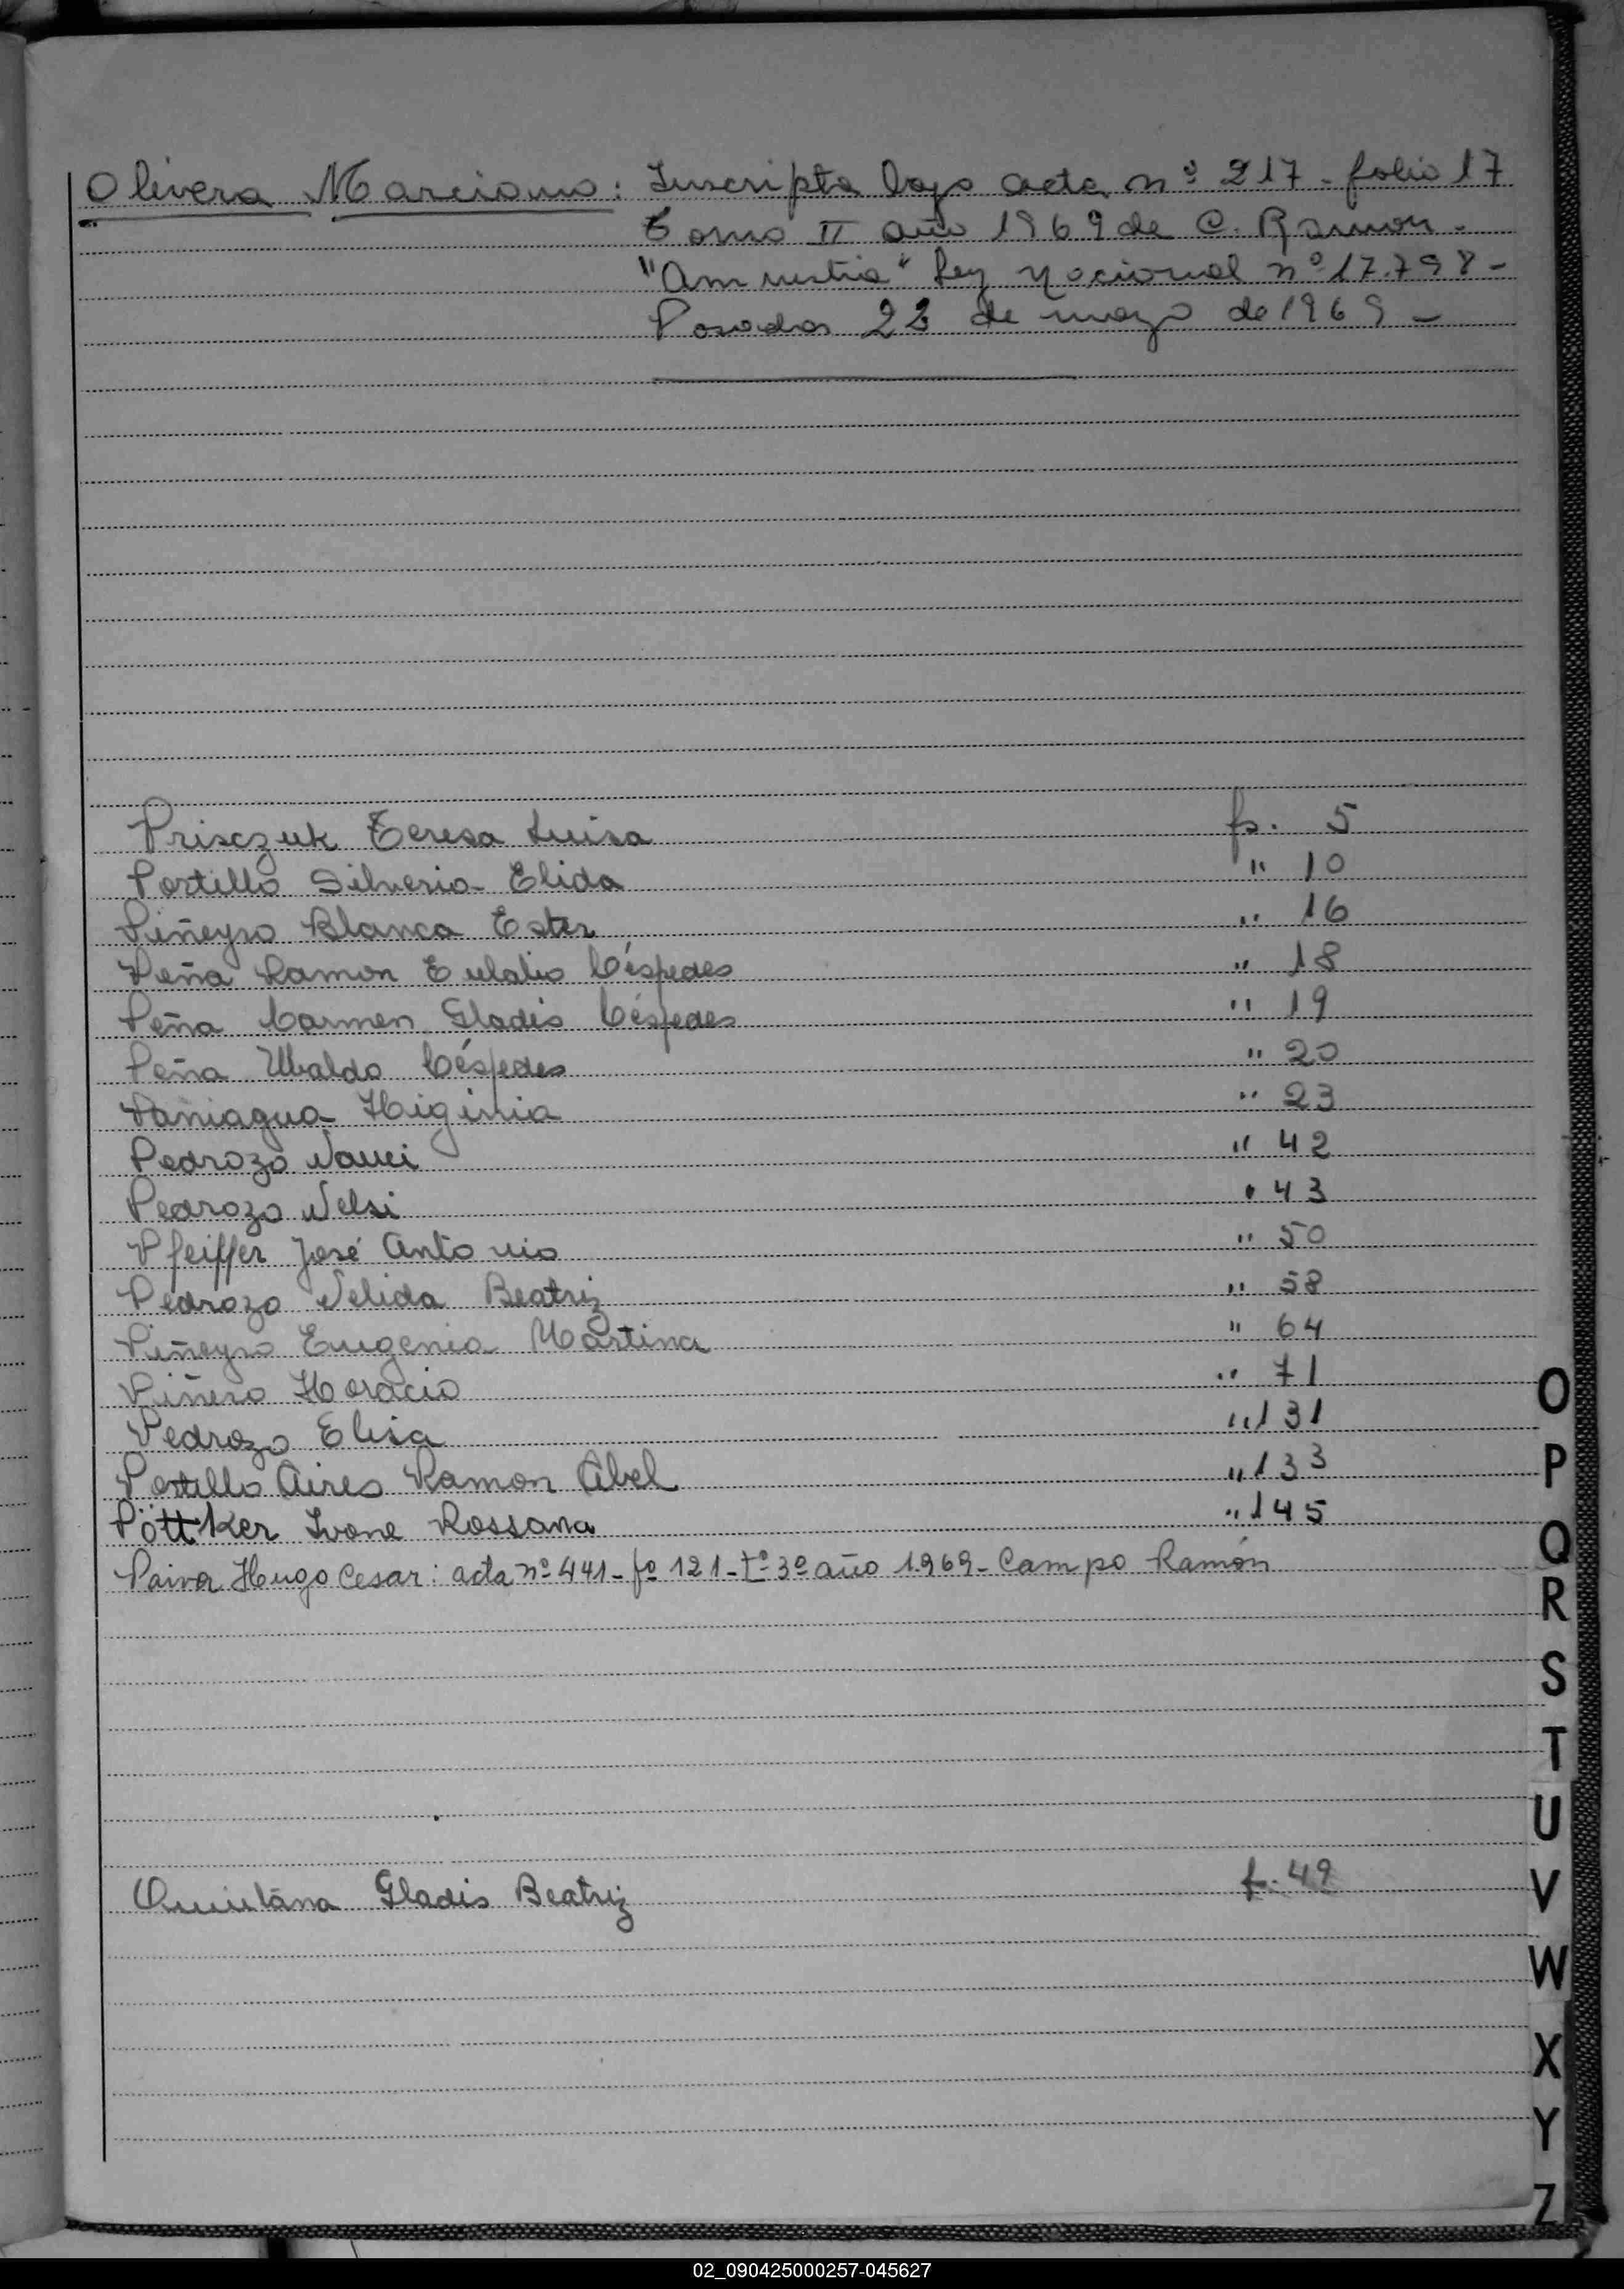 Olivera Marciano: Inscripta bajo acta nº 217 - folio 17
Tomo II año 1969 de C. Ramon -
"Amnistia" Ley Nacional nº 17.798 -
Posadas 22 de mayo de 1969 -
Prisczuk Teresa Luisa fs. 5
Portillo Silveria Elida " 10
Piñeyro Blanca Ester " 16
Peña Ramon Eulalio Céspedes " 18
Peña Carmen Gladis Céspedes " 19
Peña Ubaldo Céspedes " 20
Paniagua Higinia " 23
Pedrozo Nanci " 42
Pedrozo Nelsi " 43
Pfeiffer José Antonio " 50
Pedrozo Nelida Beatriz " 58
Piñeyro Eugenia Martina " 64
Piñero Horacio " 71
Pedrozo Elisa " 131
Portillo Aires Ramon Abel " 133
Pöttker Ivone Rossana " 145
Paiva Hugo Cesar: acta nº 441 - fº 121 - tº 3º año 1.969 - Campo Ramón
Quintana Gladis Beatriz f. 49
O
P
Q
R
S
T
U
V
W
X
Y
Z
02_090425000257-045627